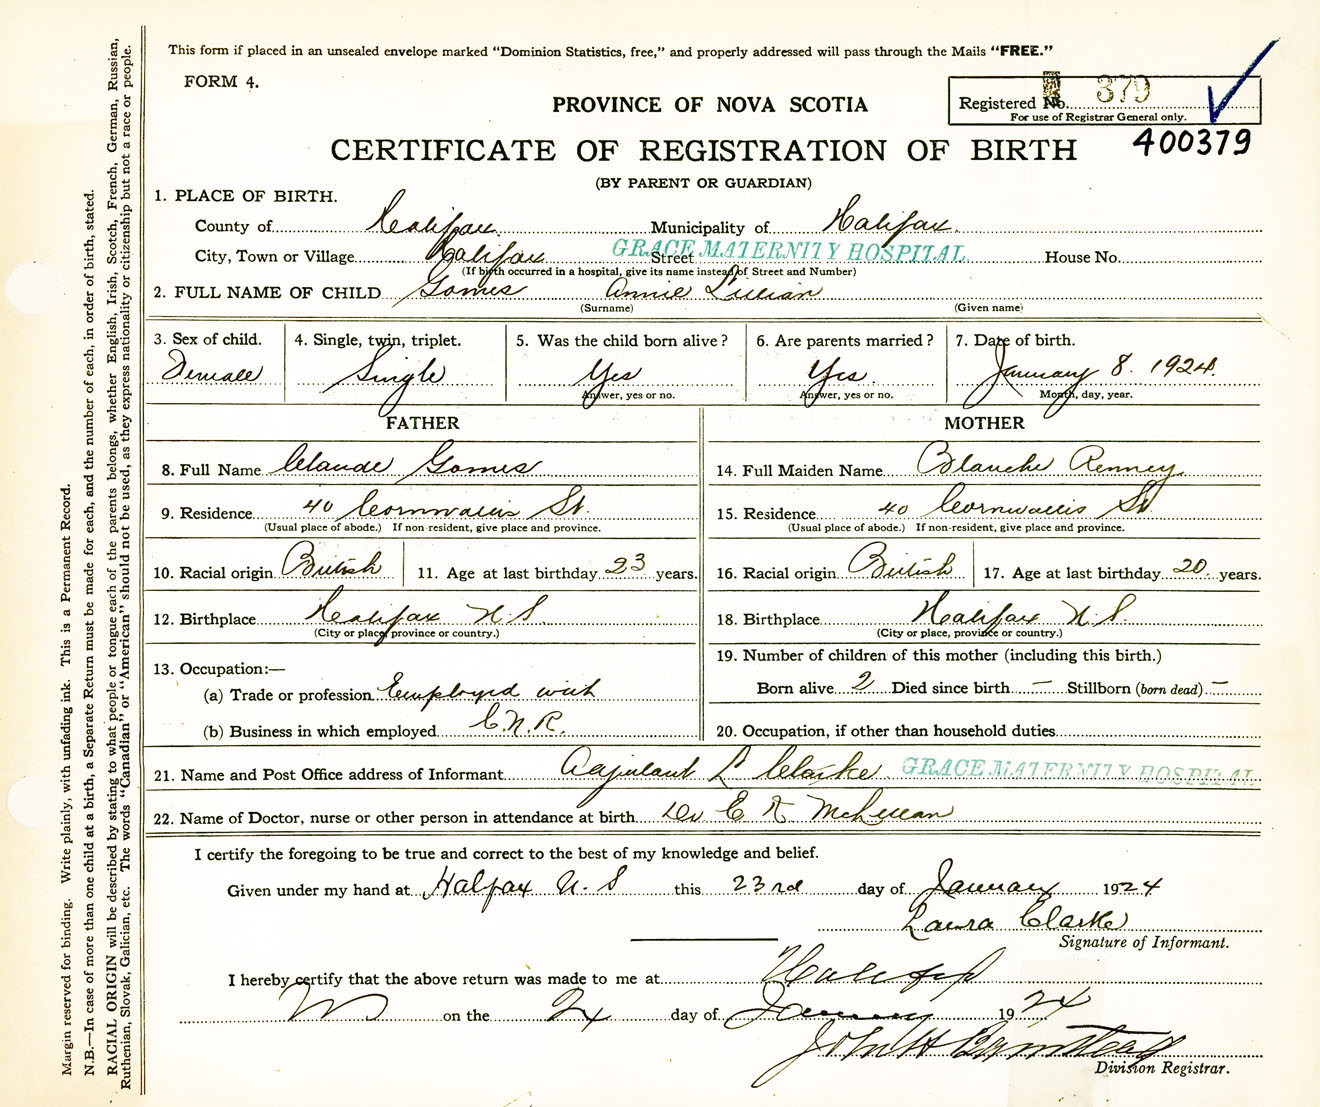 This form if placed in an unsealed envelope marked "Dominion Statistics, free," and properly addressed will pass through the Mails "FREE."
FORM 4.
Registered No. 379
For use of Registrar General only.
400379
PROVINCE OF NOVA SCOTIA
CERTIFICATE OF REGISTRATION OF BIRTH
(BY PARENT OR GUARDIAN)
1. PLACE OF BIRTH.
County of Halifax Municipality of Halifax
City, Town or Village Halifax Street GRACE MATERNITY HOSPITAL House No.
(If birth occurred in a hospital, give its name instead of Street and Number)
2. FULL NAME OF CHILD Gomes Annie Lillian
(Surname) (Given name)
3. Sex of child. 4. Single, twin, triplet. 5. Was the child born alive? 6. Are parents married? 7. Date of birth.
Female Single Yes Yes. January 8. 1924.
Answer, yes or no. Answer, yes or no. Month, day, year.
FATHER MOTHER
8. Full Name Claude Gomes 14. Full Maiden Name Blanche Renney
9. Residence 40 Cornwallis St. 15. Residence 40 Cornwallis St.
(Usual place of abode.) If non-resident, give place and province. (Usual place of abode.) If non-resident, give place and province.
10. Racial origin British 11. Age at last birthday 23 years. 16. Racial origin British 17. Age at last birthday 20. years.
12. Birthplace Halifax N.S. 18. Birthplace Halifax N.S.
(City or place, province or country.) (City or place, province or country.)
13. Occupation:— 19. Number of children of this mother (including this birth.)
(a) Trade or profession Employed with Born alive 2 Died since birth — Stillborn (born dead) —
(b) Business in which employed C.N.R. 20. Occupation, if other than household duties
21. Name and Post Office address of Informant Adjutant L Clarke GRACE MATERNITY HOSPITAL
22. Name of Doctor, nurse or other person in attendance at birth Dr E K
I certify the foregoing to be true and correct to the best of my knowledge and belief.
Given under my hand at Halifax N.S this 23rd day of January 1924
Laura Clarke
Signature of Informant.
I hereby certify that the above return was made to me at Halifax
on the 24 day of January 1924
John H
Division Registrar.
Margin reserved for binding. Write plainly, with unfading ink. This is a Permanent Record.
N.B.—In case of more than one child at a birth, a Separate Return must be made for each, and the number of each, in order of birth, stated.
RACIAL ORIGIN will be described by stating to what people or tongue each of the parents belongs, whether English, Irish, Scotch, French, German, Russian,
Ruthenian, Slovak, Galician, etc. The words "Canadian" or "American" should not be used, as they express nationality or citizenship but not a race or people.